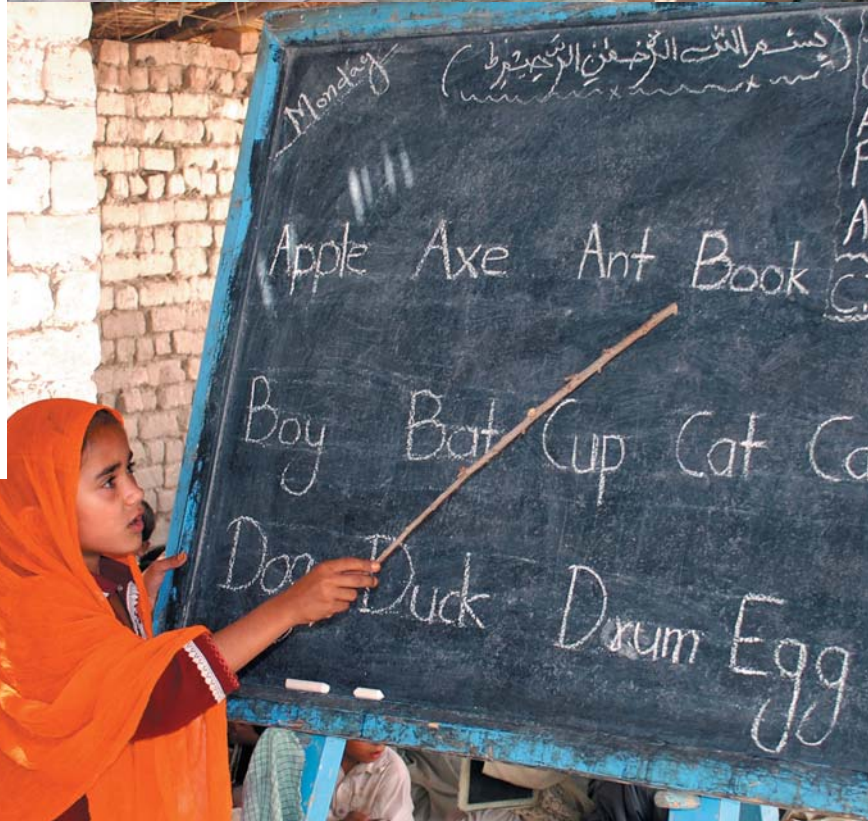 Monday
(بسم اللہ الرحمٰن الرحیم ط)
Apple Axe Ant Book
Boy Bat Cup Cat
Dog Duck Drum Egg